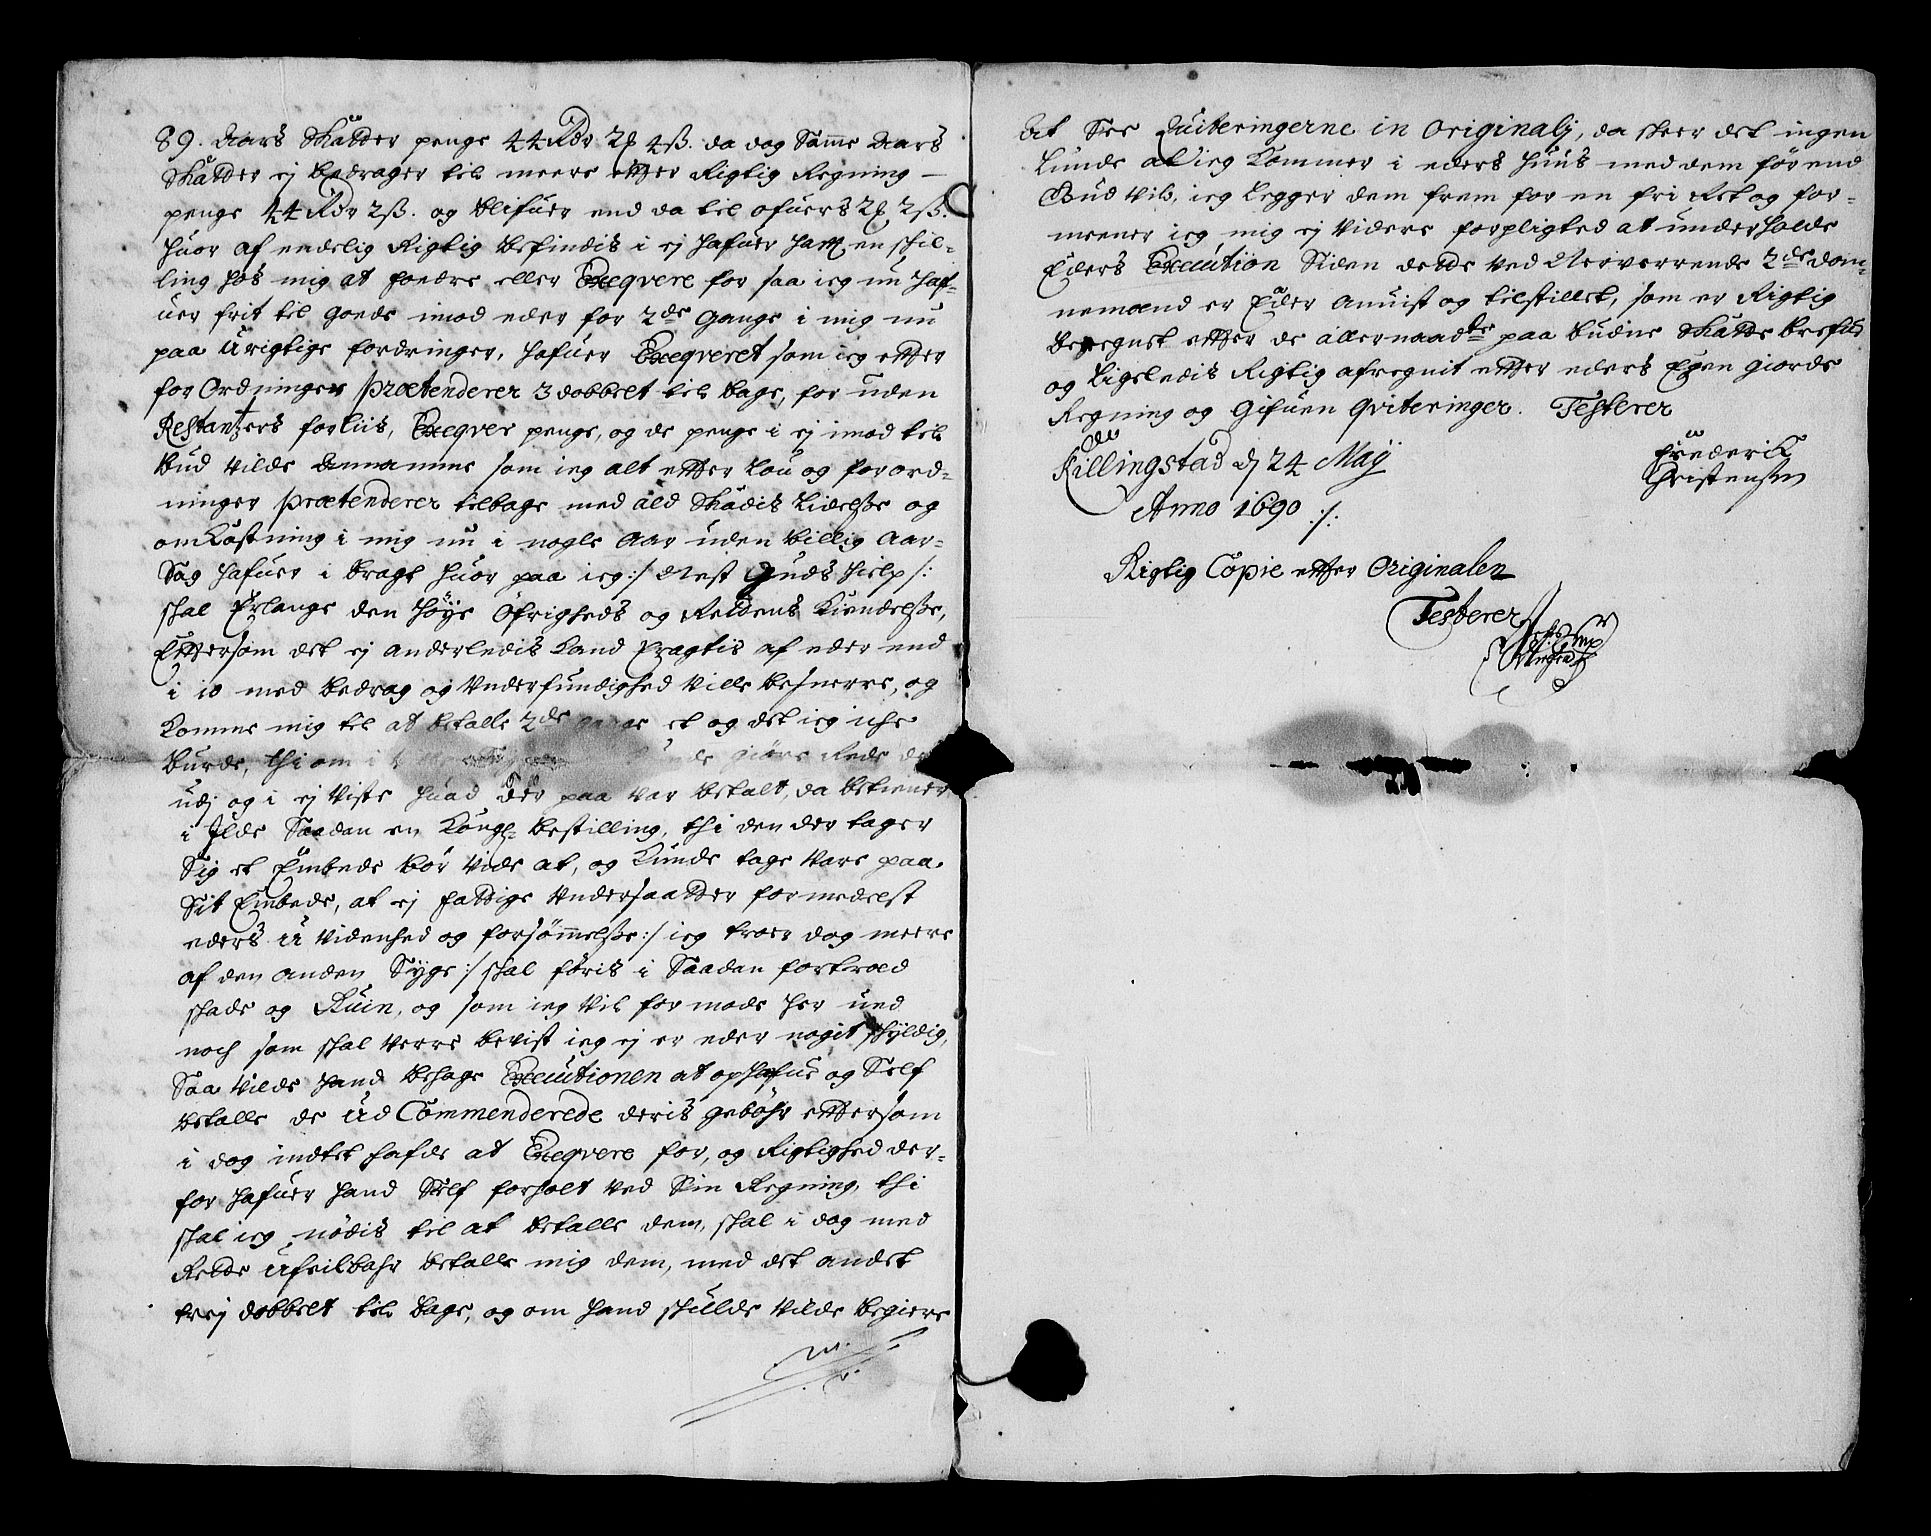 89. Aars Skatter penge 44 Rdr 2ȝ 4ß. da dog Samme Aars
Skatter ej bedrager til meere efter Rigtig Regning –
penge 44 Rdr 2ß. og blifuer end da til ofuers 2ȝ 2ß.
huor af endelig Rigtig befindis i ej hafuer ham en skil-
ling hos mig at fordre eller Exeqvere for saa ieg nu haf-
uer frit til gode imod eder for 2de Gange i mig nu
paa Urigtige fordringer, hafuer Exeqveret som ieg efter
for Ordninger prætenderer 3 dobbelt til bage, for uden
Restantzers forliis, Exeqver penge, og de penge i ej imod til
bud vilde Annamme som ieg alt efter Lou og forord-
ninger prætenderer tilbage med ald Skadis Lidelse og
omkostning i mig nu i nogle Aar uden billig Aar-
Sag hafuer i bragt huor paa ieg :/ Nest Guds hielp /:
skal Erlange den høye Öfrigheds og Rettens Kiendelse,
Eftersom det ej anderledis kand Eragtis af eder end
i io med bedrag og Underfundighed ville besnerre, og
komme mig til at betalle 2de gange et og det ieg iche
burde, thi om i giøre Rede der
udj og i ej viste huad der paa var betalt, da betiener
i Ilde Saadan en Kongl. bestilling, thi den der tager
Sig et Embede bör vide at, og kunde tage vare paa
Sit Embede, at ej fattige Undersaatter formedelst
eders Uvidenhed og forsömmelse :/ ieg troer dog meere
af den anden Syge :/ skal føris i Saadan fortræd
skade og Ruin, og som ieg vil formode her ved
noch som skal verre bevist ieg ej er eder nogit skyldig,
Saa vilde hand behage Executionen at ophæfue og Self
betalle de Ud Commenderede deris gebühr eftersom
i dog indtet hafde at Exeqvere for, og Rigtighed der-
for hafuer hand Self forholt ved Sin Regning, thi
skal ieg nödis til at betalle dem, skal i dog med
Rette Ufeilbahr betalle mig dem, med det andet
trej dobbelt til bage, og om hand skulde vilde begiere
At See Quiteringerne in Originalj, da skeer det ingen
lunde at ieg kommer i eders huus med dem før end
Gud vil, ieg legger dem frem for en fri Ret og for-
meener ieg mig ej videre forpligted at underholde
Eders Execution Siden dette ved Nerverrende 2de dan-
nemænd er Eder anuist og tilstillet, som er Rigtig
beregnet efter de allernaadte paa budne Skatte brefue
og Ligeledis Rigtig afregnit efter eders Egen giorde
Regning og Gifuen Qviteringer. Testerer
Killingstad d 24 Maij
Frederick
Christensen
Anno 1690 ./.
Rigtig Copie efter Originalen
Testerer